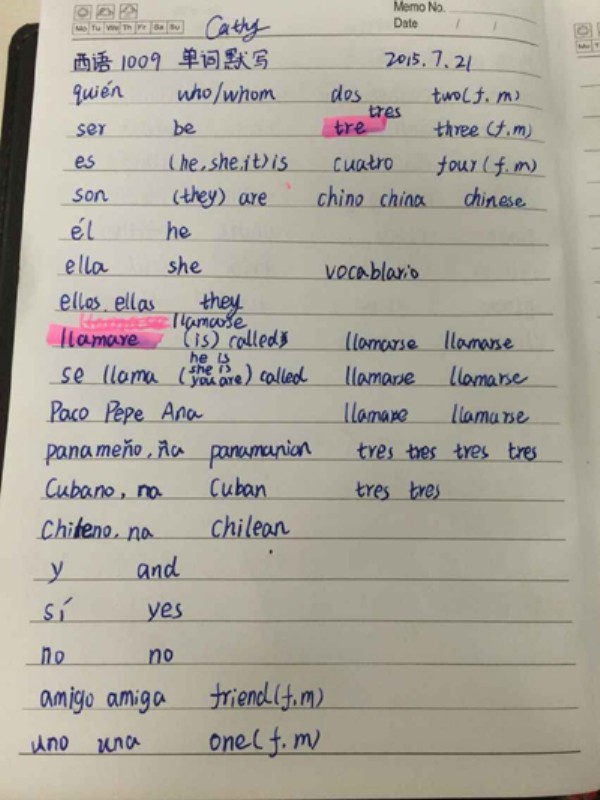 Memo No.
Mo Tu We Th Fr Sa Su Cathy Date / /
西语1009 单词默写 2015.7.21
quién who/whom dos two(f.m)
tres
ser be tre three (f.m)
es (he,she,it) is cuatro four(f.m)
son (they) are chino china chinese
él he
ella she vocablario
ellos ellas they
llamarse
llamare (is) called llamarse llamarse
he is
she is
se llama (you are) called llamarse llamarse
Paco Pepe Ana llamarse llamarse
panameño, ña panamanian tres tres tres tres
Cubano, na Cuban tres tres
Chileno, na Chilean
y and
sí yes
no no
amigo amiga friend(f.m)
uno una one(f.m)